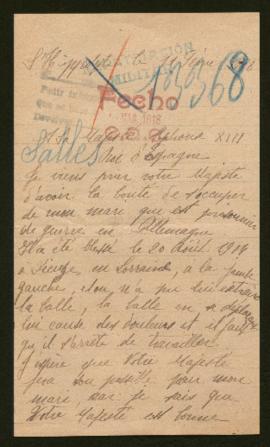 St Hippolyte
MILITAR
133368
Fecho
1918
Salles
A Sa Majesté Alphonse XIII
Roi d'Espagne
Je viens prier votre Majesté
d'avoir la bonté de s'occuper
de mon mari qui est prisonnier
de guerre en Allemagne
Il a été blessé le 20 Août 1914
a Dieuze, en Lorraine, a la jambe
gauche, l'on n'a pu lui extraire
la balle, la balle en se
lui cause des douleurs et il faut
qu'il s'arrête de travailler
J'espère que Votre Majesté
fera son possible pour mon
mari car je sais que
Votre Majesté est bonne